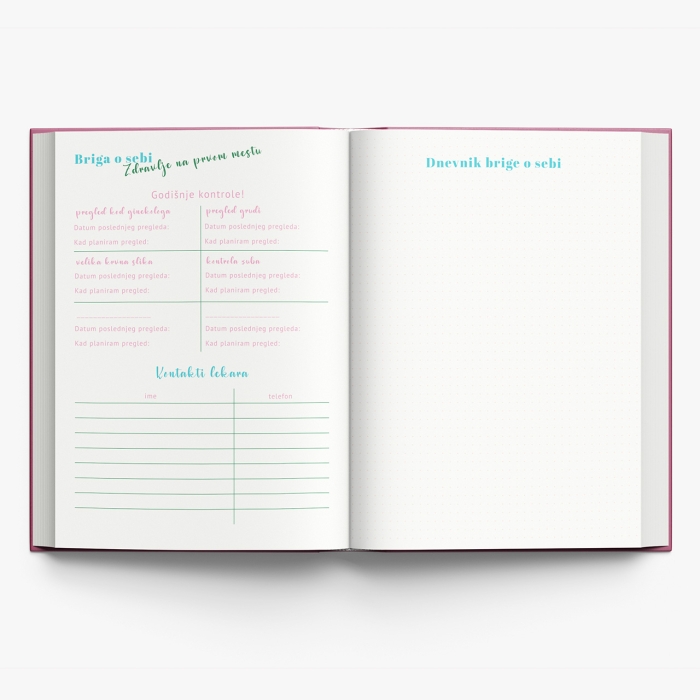 Briga o sebi
Zdravlje na prvom mestu
Godišnje kontrole!
pregled kod ginekologa
Datum poslednjeg pregleda:
Kad planiram pregled:
pregled grudi
Datum poslednjeg pregleda:
Kad planiram pregled:
velika krvna slika
Datum poslednjeg pregleda:
Kad planiram pregled:
kontrola zuba
Datum poslednjeg pregleda:
Kad planiram pregled:
Datum poslednjeg pregleda:
Kad planiram pregled:
Datum poslednjeg pregleda:
Kad planiram pregled:
Kontakti lekara
ime
telefon
Dnevnik brige o sebi